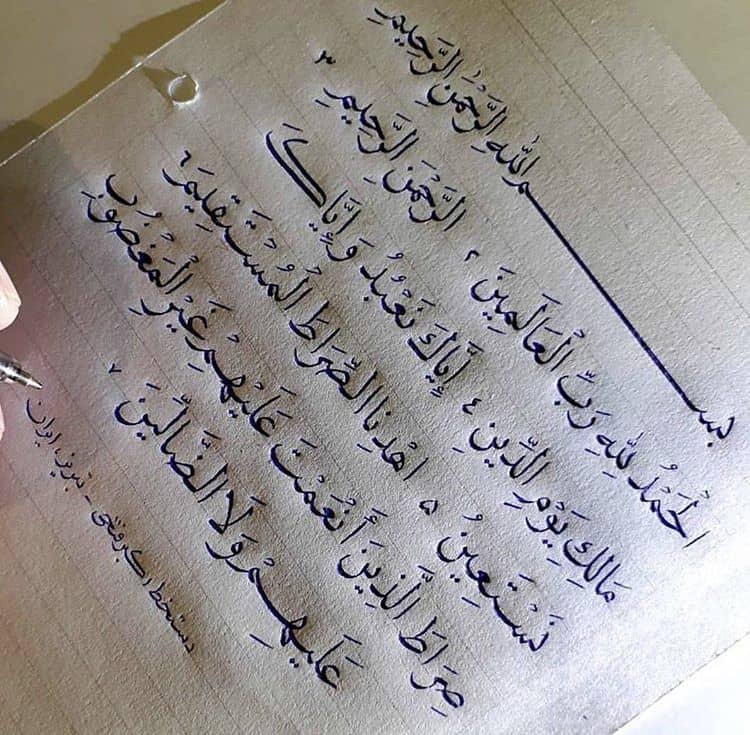 بِسْمِ اللهِ الرَّحْمَنِ الرَّحِيمِ
الْحَمْدُ لِلهِ رَبِّ الْعَالَمِينَ ۲ الرَّحْمَنِ الرَّحِيمِ ۳
مَالِكِ يَوْمِ الدِّينِ ٤ إِيَّاكَ نَعْبُدُ وَإِيَّاكَ
نَسْتَعِينُ ۵ اهْدِنَا الصِّرَاطَ الْمُسْتَقِيمَ ٦
صِرَاطَ الَّذِينَ أَنْعَمْتَ عَلَيْهِمْ غَيْرِ الْمَغْضُوبِ
عَلَيْهِمْ وَلَا الضَّالِّينَ ۷
دستخط اکبر فتحی - تبریز، ایران